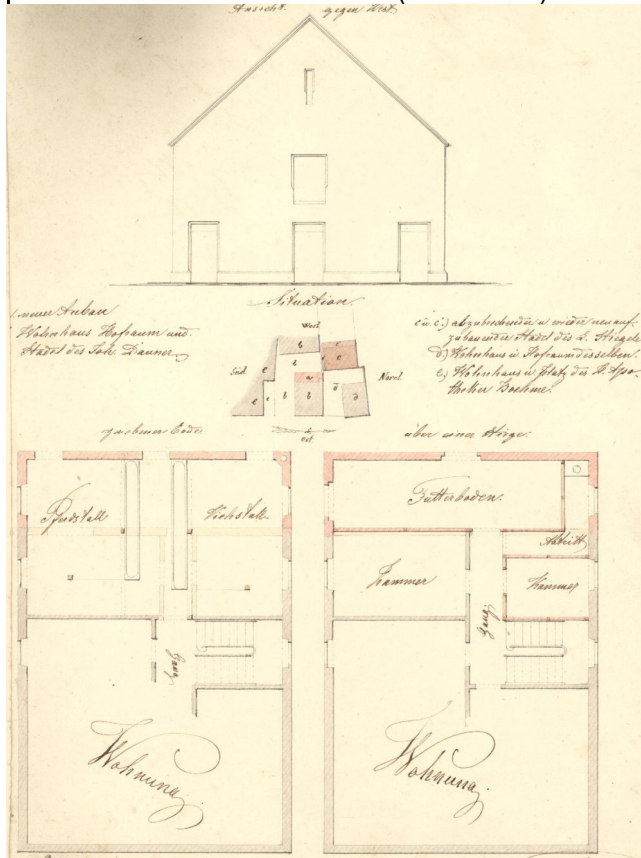 Ansicht gegen West.
Situation.
West
Süd
Nord
Ost
a
b
b
b
b
c
c
d
d
e
e
e
neuer Anbau
Wohnhaus Hofraum und
Stadel des Joh. Danner.
c u. c.) abzubrechender u. wieder neu auf-
zubauender Stadel des
d) Wohnhaus u. Hofraum desselben.
e) Wohnhaus u. Platz des H. Apo-
theker Boehme.
zu ebener Erde.
über einer Stiege.
Pferdstall
Viehstall
Gang
Wohnung.
Futterboden.
Abtritt
Kammer
Kammer
Gang.
Wohnung.